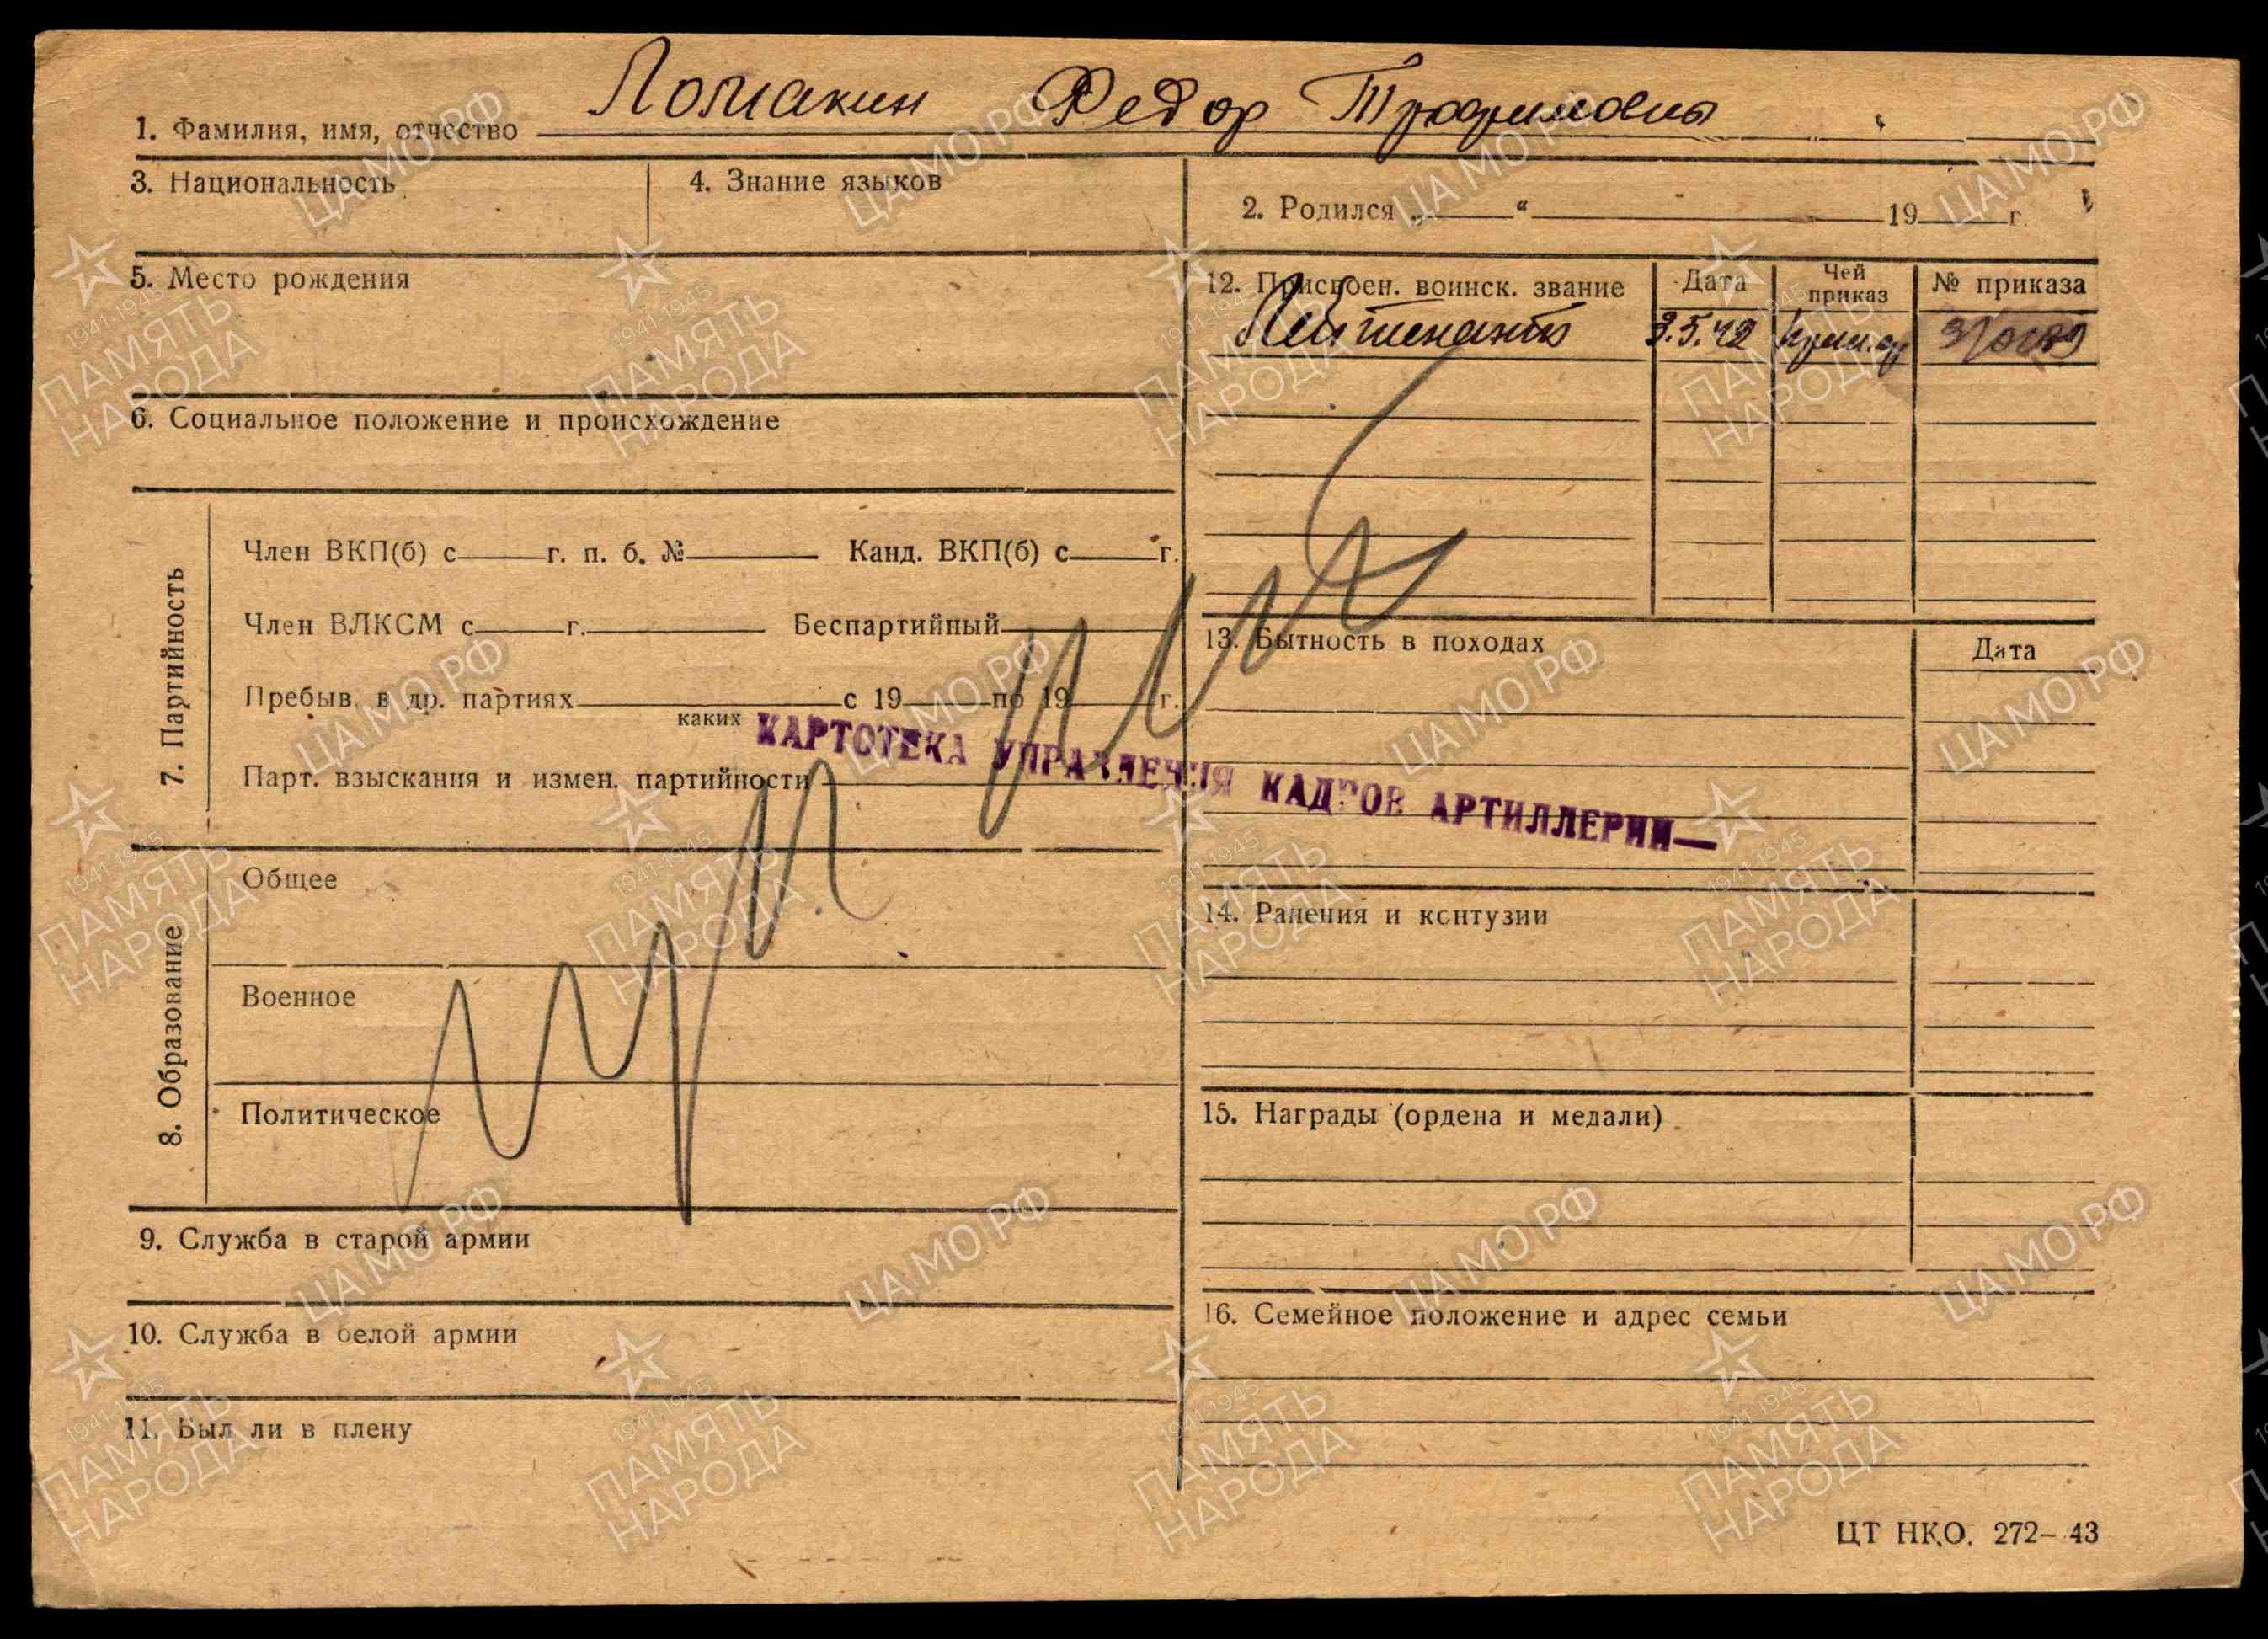 1. Фамилия, имя, отчество Ломакин Федор Трофимович
3. Национальность
4. Знание языков
2. Родился „ “ 19 г.
5. Место рождения
6. Социальное положение и происхождение
7. Партийность
Член ВКП(б) с г. п. б. № Канд. ВКП(б) с г.
Член ВЛКСМ с г. Беспартийный
Пребыв. в др. партиях с 19 по 19 г.
каких
Парт. взыскания и измен. партийности
8. Образование
Общее
Военное
Политическое
9. Служба в старой армии
10. Служба в белой армии
11. Был ли в плену
12. Присвоен. воинск. звание Дата Чей приказ № приказа
Лейтенант 3.5.42
13. Бытность в походах Дата
КАРТОТЕКА УПРАВЛЕНИЯ КАДРОВ АРТИЛЛЕРИИ—
14. Ранения и контузии
15. Награды (ордена и медали)
16. Семейное положение и адрес семьи
ЦТ НКО. 272–43
ЦАМО.РФ
1941-1945
ПАМЯТЬ
НАРОДА